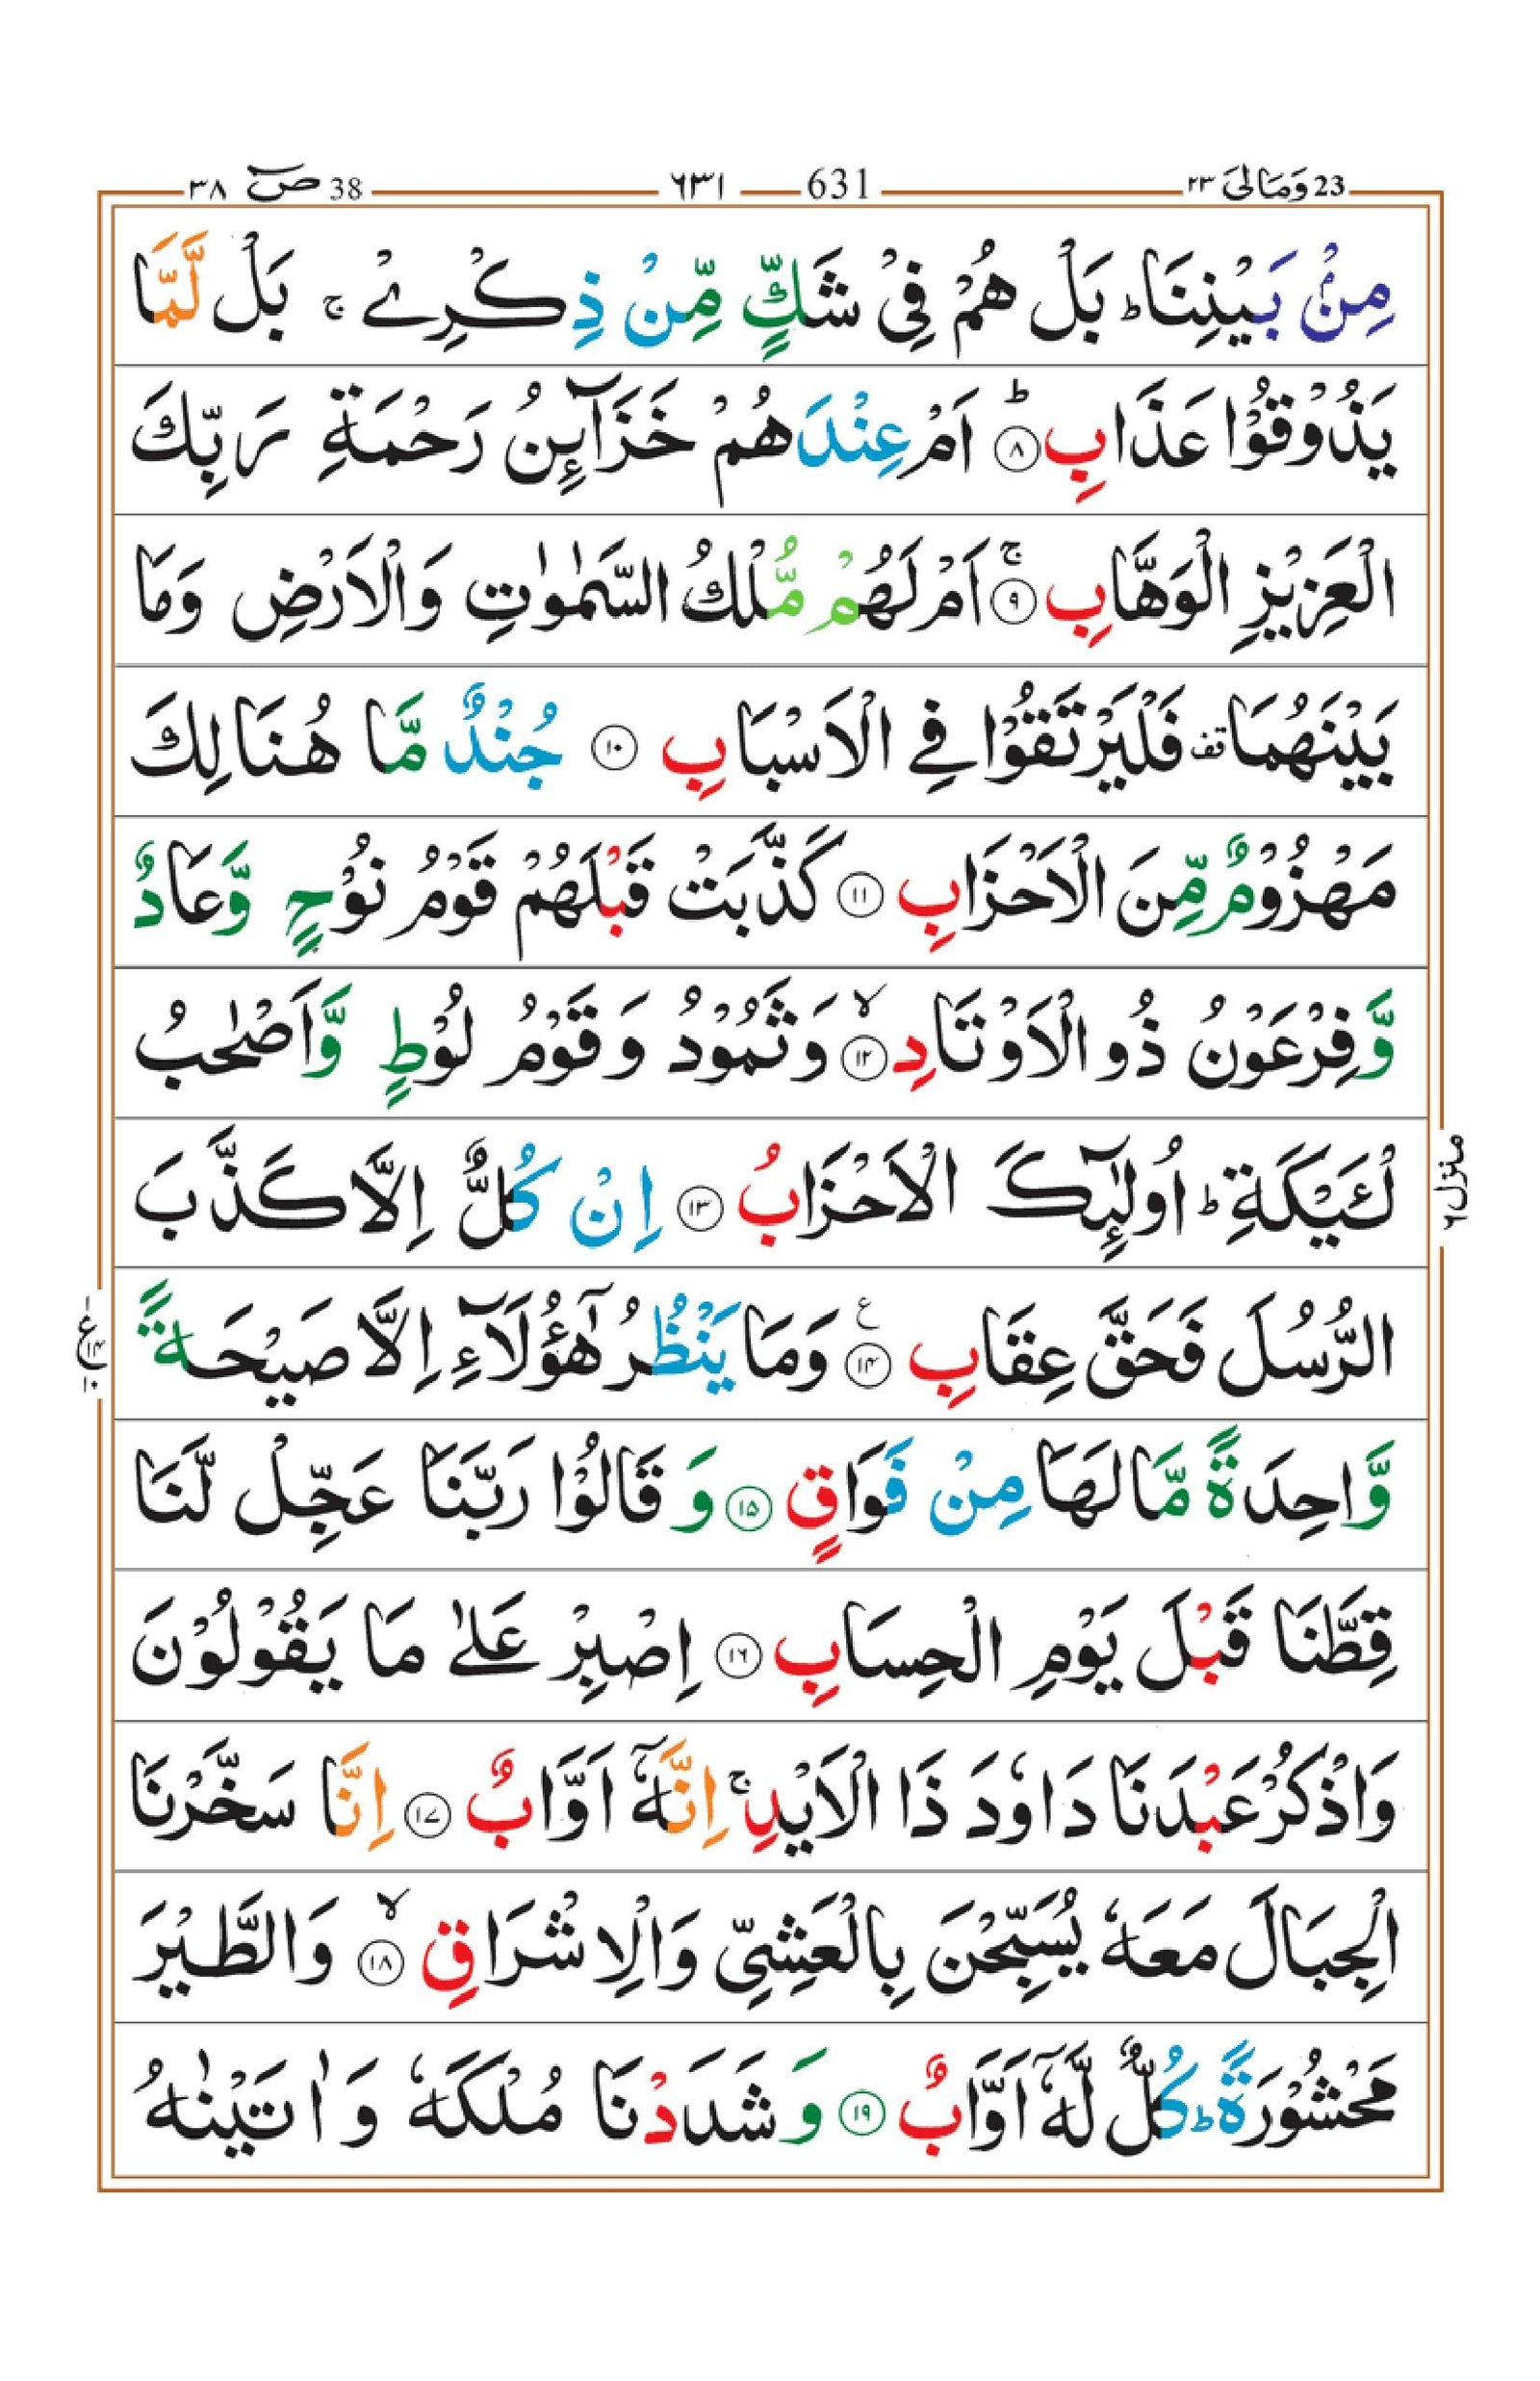 38 صٓ ٣٨ 631 ٦٣١ 23 وَمَالِیَ ٢٣
مِنْۢ بَیْنِنَا ؕ بَلْ هُمْ فِیْ شَكٍّ مِّنْ ذِكْرِیْ ۚ بَلْ لَّمَّا
یَذُوْقُوْا عَذَابِ ؕ ﴿۸﴾ اَمْ عِنْدَهُمْ خَزَآىِٕنُ رَحْمَةِ رَبِّكَ
الْعَزِیْزِ الْوَهَّابِ ۚ ﴿۹﴾ اَمْ لَهُمْ مُّلْكُ السَّمٰوٰتِ وَالْاَرْضِ وَمَا
بَیْنَهُمَا قف فَلْیَرْتَقُوْا فِی الْاَسْبَابِ ﴿۱۰﴾ جُنْدٌ مَّا هُنَالِكَ
مَهْزُوْمٌ مِّنَ الْاَحْزَابِ ﴿۱۱﴾ كَذَّبَتْ قَبْلَهُمْ قَوْمُ نُوْحٍ وَّعَادٌ
وَّفِرْعَوْنُ ذُو الْاَوْتَادِ ۙ ﴿۱۲﴾ وَثَمُوْدُ وَقَوْمُ لُوْطٍ وَّاَصْحٰبُ
لْـَٔیْكَةِ ؕ اُولٰٓىِٕكَ الْاَحْزَابُ ﴿۱۳﴾ اِنْ كُلٌّ اِلَّا كَذَّبَ
الرُّسُلَ فَحَقَّ عِقَابِ ع ﴿۱۴﴾ وَمَا یَنْظُرُ هٰۤؤُلَآءِ اِلَّا صَیْحَةً
وَّاحِدَةً مَّا لَهَا مِنْ فَوَاقٍ ﴿۱۵﴾ وَقَالُوْا رَبَّنَا عَجِّلْ لَّنَا
قِطَّنَا قَبْلَ یَوْمِ الْحِسَابِ ﴿۱۶﴾ اِصْبِرْ عَلٰی مَا یَقُوْلُوْنَ
وَاذْكُرْ عَبْدَنَا دَاوٗدَ ذَا الْاَیْدِ ۚ اِنَّهٗۤ اَوَّابٌ ﴿۱۷﴾ اِنَّا سَخَّرْنَا
الْجِبَالَ مَعَهٗ یُسَبِّحْنَ بِالْعَشِیِّ وَالْاِشْرَاقِ ۙ ﴿۱۸﴾ وَالطَّیْرَ
مَحْشُوْرَةً ؕ كُلٌّ لَّهٗۤ اَوَّابٌ ﴿۱۹﴾ وَشَدَدْنَا مُلْكَهٗ وَاٰتَیْنٰهُ
منزل ٦